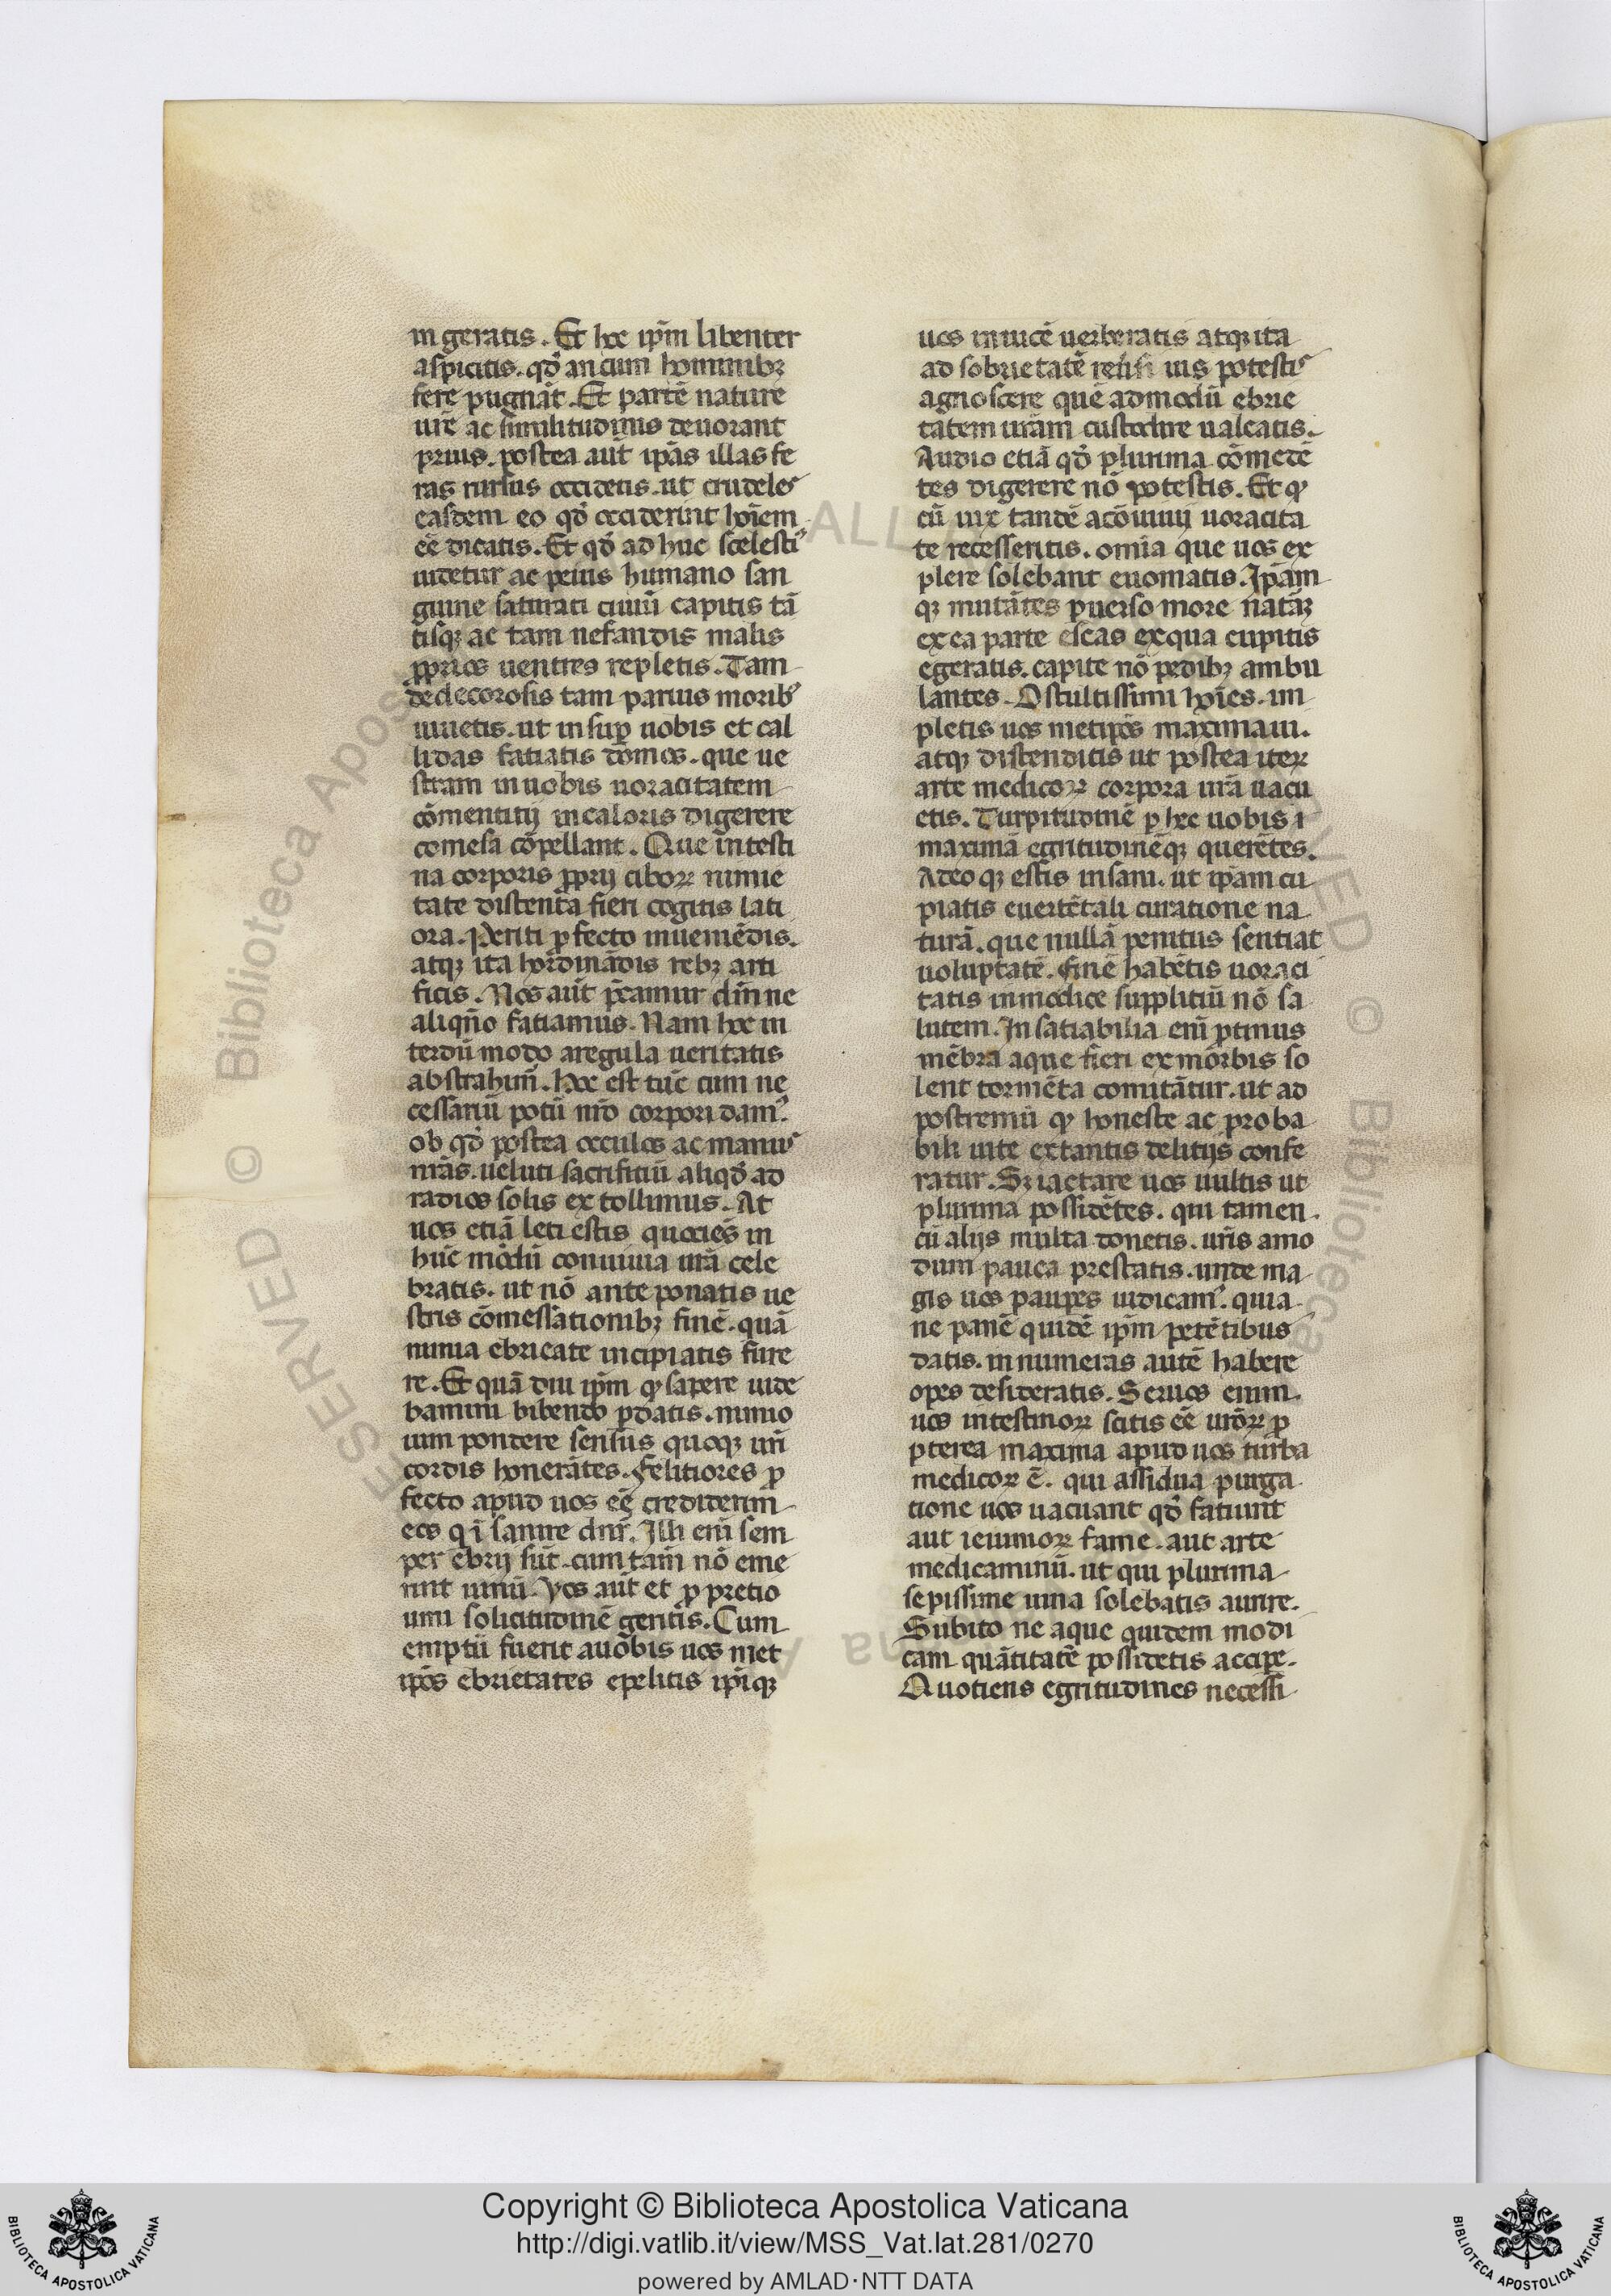 in geratis. Et hoc ip̄m libenter
aspicitis. qd̓ an cum hominibꝫ
fere pugnāt. Et partē nature
ur̄e ac similitudinis deuorant
prius. postea aut̄ ip̄as illas fe
ras rursus occidetis. ut crudeles
easdem eo qd̓ occiderint hoīem
eē dicatis. Et qd̓ ad huc scelesti᾽
uidetur ac peius humano san
guine saturati ciuiū capitis tā
tisqꝫ ac tam nefandis malis
ꝓprios uentres repletis. Tam
dedecorosis tam paruis morib᾽
uiuetis. ut insuꝑ uobis et cal
lidas fatiatis domos. que ue
stram in uobis uoracitatem
cōmentitij in caloris digerere
comesa cōpellant. Que intesti
na corporis ꝓprij ciboꝝ nimie
tate distenta fieri cogitis lati
ora. Periti ꝓfecto inueniēdis.
atqꝫ ita hordinādis rebꝫ arti
ficis. Nos aut̄ p̄camur dn̄m ne
aliqn̄o fatiamus. Nam hoc in
terdū modo a regula ueritatis
abstrahim᷒. hoc est tūc cum ne
cessariū potū nr̄o corpori dam᷒.
ob qd̓ postea occulos ac manus
nr̄as. ueluti sacrifitiū aliqd̓ ad
radios solis extollimus. At
uos etiā leti estis quociēs in
hūc modū conuiuia ur̄a cele
bratis. ut nō ante ponatis ue
stris cōmessationibꝫ finē. quā
nimia ebrietate incipiatis fure
re. Et quā diu ip̄m ꝙ sapere uide
bamini bibendo ꝑdatis. nimio
uini pondere sensus quoqꝫ ur̄i
cordis honerātes. Felitiores ꝓ
fecto apud uos eē crediderim
eos q̄ īsanire dn̄r. Illi eni᷒ sem
per ebrij sūt. cum tam̄ nō eme
rint uinū. Vos aut̄ et ꝓ pretio
uini solicitudinē geritis. Cum
emptū fuerit a uobis uos met
ip̄os ebrietates epelitis ip̄iqꝫ
uos inuicē uerberatis atqꝫ ita
ad sobrietatē uis potestis
agnoscere quē admodū ebrie
tatem ur̄am custodire ualeatis.
Audio etiā qd̓ plurima cōmedē
tes digerere nō potestis. Et ꝙ
cū uix tandē a cōuiuij uoracita
te recesseritis. omīa que uos ex
plere solebant euomatis. Ip̄am
qꝫ mutātes ꝑuerso more natāꝫ
ex ea parte escas ex qua cupitis
egeratis. capite nō pedibꝫ ambu
lantes. O stultissimi hoīes. im
pletis uos metip̄os maxima ui.
atqꝫ distenditis ut postea iteꝝ
arte medicoꝝ corpora ur̄a uacu
etis. Turpitudinē ꝑ hec uobis ī
maximā egritudinēqꝫ querētes.
Adeo qꝫ estis insani. ut ip̄am cu
piatis euertē tali curatione na
turā. que nullā penitus sentiat
uoluptatē. Finē habētis uoraci
tatis inmodice supplitiū nō sa
lutem. Insatiabilia eni᷒ ꝓtinus
mēbra aque fieri ex morbis so
lent tormēta comitātur. ut ad
postremū ꝙ honeste ac proba
bili uite extantis delitijs confe
ratur. Sꝫ iactare uos uultis ut
plurima possidētes. qui tamen
cū alijs multa donetis. ur̄is amo
dum pauca prestatis. unde ma
gis uos pauꝑes iudicam᷒. quia
ne panē quidē ip̄m petētibus
datis. innumeras autē habere
opes desideratis. Seruos enim
uos intestinoꝝ scitis eē uroꝝ ꝓ
pterea maxima apud uos turba
medicoꝝ ē. qui assidua purga
tione uos uacuant qd̓ fatiunt
aut ieiunioꝝ fame. aut arte
medicaminū. ut qui plurima
sepissime uina solebatis aurire.
Subito ne aque quidem modi
cam quātitatē possidetis acciꝑe.
Quotiens egritudines necessi
Copyright © Biblioteca Apostolica Vaticana
http://digi.vatlib.it/view/MSS_Vat.lat.281/0270
powered by AMLAD·NTT DATA